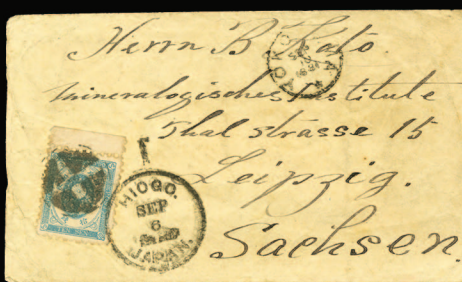 Herrn B Kato.
mineralogisches Institute
Thal strasse 15
Leipzig.
Sachsen.
HIOGO.
SEP
6
JAPAN.
TEN SEN